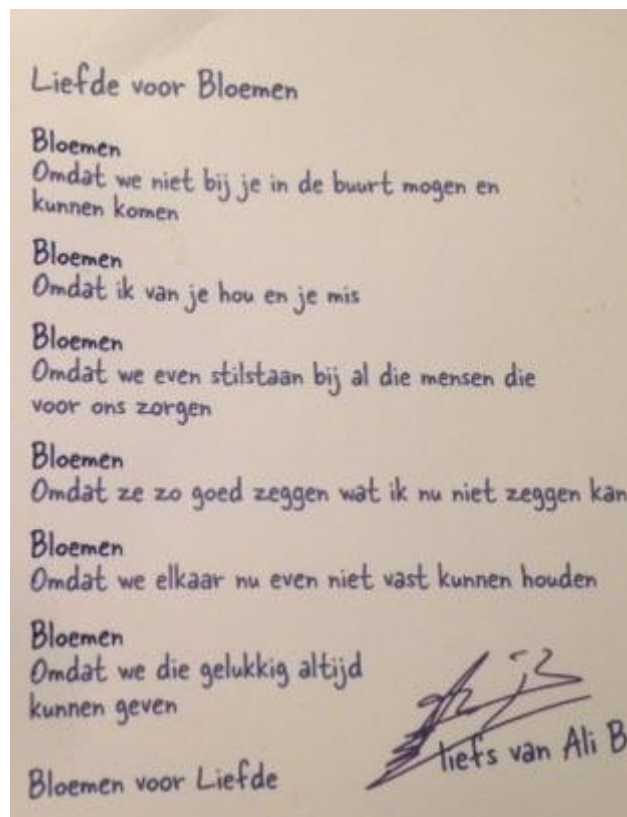 Liefde voor Bloemen
Bloemen
Omdat we niet bij je in de buurt mogen en
kunnen komen
Bloemen
Omdat ik van je hou en je mis
Bloemen
Omdat we even stilstaan bij al die mensen die
voor ons zorgen
Bloemen
Omdat ze zo goed zeggen wat ik nu niet zeggen kan
Bloemen
Omdat we elkaar nu even niet vast kunnen houden
Bloemen
Omdat we die gelukkig altijd
kunnen geven
liefs van Ali B
Bloemen voor Liefde